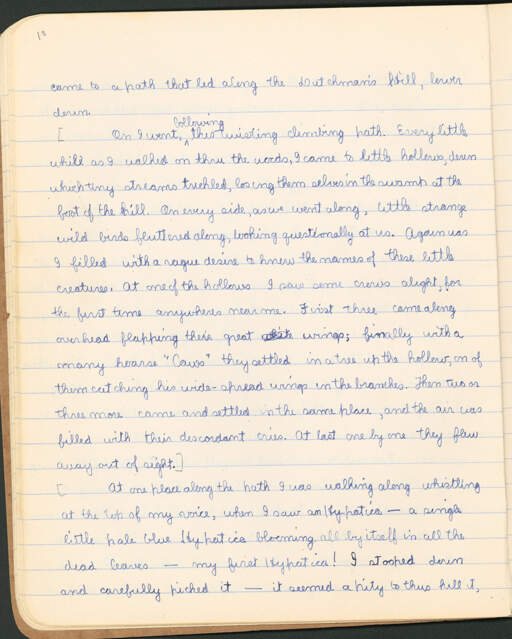 18
came to a path that led along the Dutchman's Hill, lower
down.
[ On I went, following this twisting climbing path. Every little
while as I walked on thru the woods, I came to little hollows, down
which tiny streams trickled, losing themselves in the swamp at the
foot of the hill. On every side, as we went along, little strange
wild birds fluttered along, looking questionally at us. Again was
I filled with a vague desire to know the names of these little
creatures. At one of the hollows I saw some crows alight, for
the first time anywheres near me. First three came along
overhead flapping their great wings; finally with a
many hoarse "Caws" they settled in a tree up the hollow, on of
them catching his wide-spread wings in the branches. Then two or
three more came and settled in the same place, and the air was
filled with their discordant cries. At last one by one they flew
away out of sight.]
[ At one place along the path I was walking along whistling
at the top of my voice, when I saw an Hypatica — a single
little pale blue Hypatica blooming all by itself in all the
dead leaves — my first Hypatica! I stooped down
and carefully picked it — it seemed a pity to thus kill it,